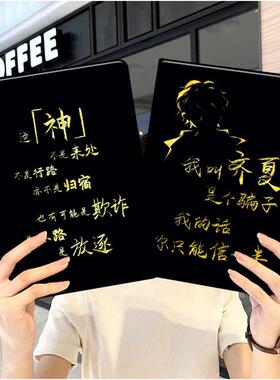 COFFEE
这「神」
不是来处
不是行路
亦不是归宿
也有可能是欺诈
路
是放逐
我叫齐夏
是个骗子
我的话
你只能信一半